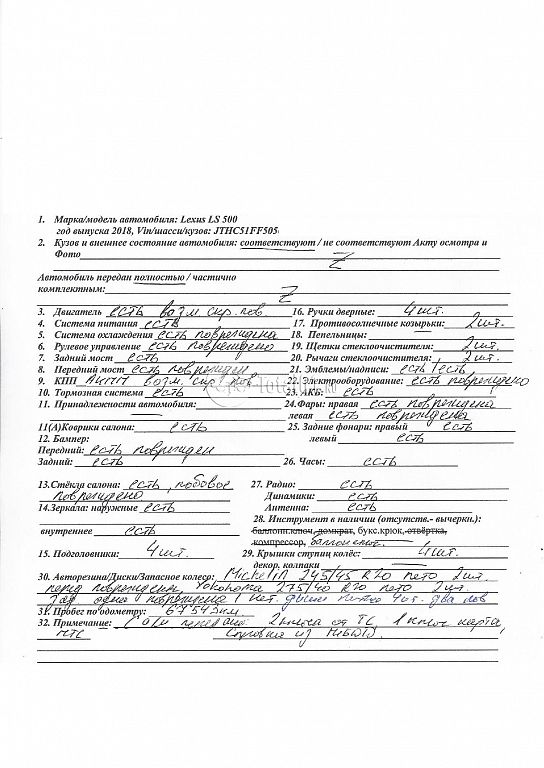 1. Марка/модель автомобиля: Lexus LS 500
год выпуска 2018, Vin/шасси/кузов: JTHC51FF505
2. Кузов и внешнее состояние автомобиля: соответствуют / не соответствуют Акту осмотра и
Фото Z
Автомобиль передан полностью / частично
комплектным: Z
3. Двигатель есть возм. скр. пов.
4. Система питания есть
5. Система охлаждения есть повреждена
6. Рулевое управление есть повреждено
7. Задний мост есть
8. Передний мост есть поврежден
9. КПП АКПП возм. скр. пов
10. Тормозная система есть
11. Принадлежности автомобиля:
11(А)Коврики салона: есть
12. Бампер:
Передний: есть поврежден
Задний: есть
13.Стёкла салона: есть, лобовое
повреждено
14.Зеркала: наружные есть
внутреннее есть
15. Подголовники: 4 шт.
16. Ручки дверные: 4 шт.
17. Противосолнечные козырьки: 2 шт.
18. Пепельницы:
19. Щетки стеклоочистителя: 2 шт.
20. Рычаги стеклоочистителя: 2 шт.
21. Эмблемы/надписи: есть/есть
22. Электрооборудование: есть повреждено
23. АКБ: есть
24.Фары: правая есть повреждена
левая есть повреждена
25. Задние фонари: правый есть
левый есть
26. Часы: есть
27. Радио: есть
Динамики: есть
Антенна: есть
28. Инструмент в наличии (отсутств.- вычеркн.):
баллонн.ключ, домкрат, букс.крюк, отвёртка,
компрессор, баллонные.
29. Крышки ступиц колёс: 4 шт.
декор. колпаки
30. Авторезина/Диски/Запасное колесо: Michelin 245/45 R20 лето 2 шт.
перед повреждены Yokohama 275/40 R20 лето 2 шт
зад одна повреждена диски литые 4 шт. два пов
31. Пробег по одометру: 67545 км
32. Примечание: 2 ключа от ТС, 1 ключ карта,
ПТС